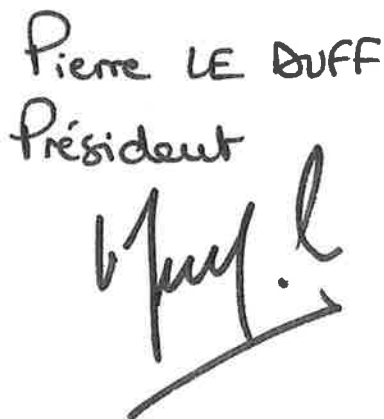 Pierre LE DUFF
Président